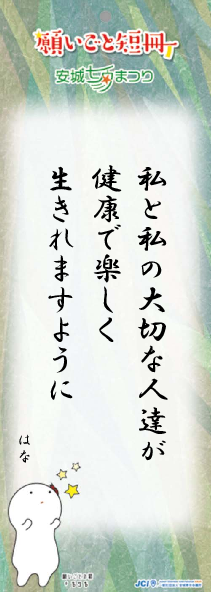 願いごと短冊
安城七夕まつり
私と私の大切な人達が
健康で楽しく
生きれますように
はな
JCI